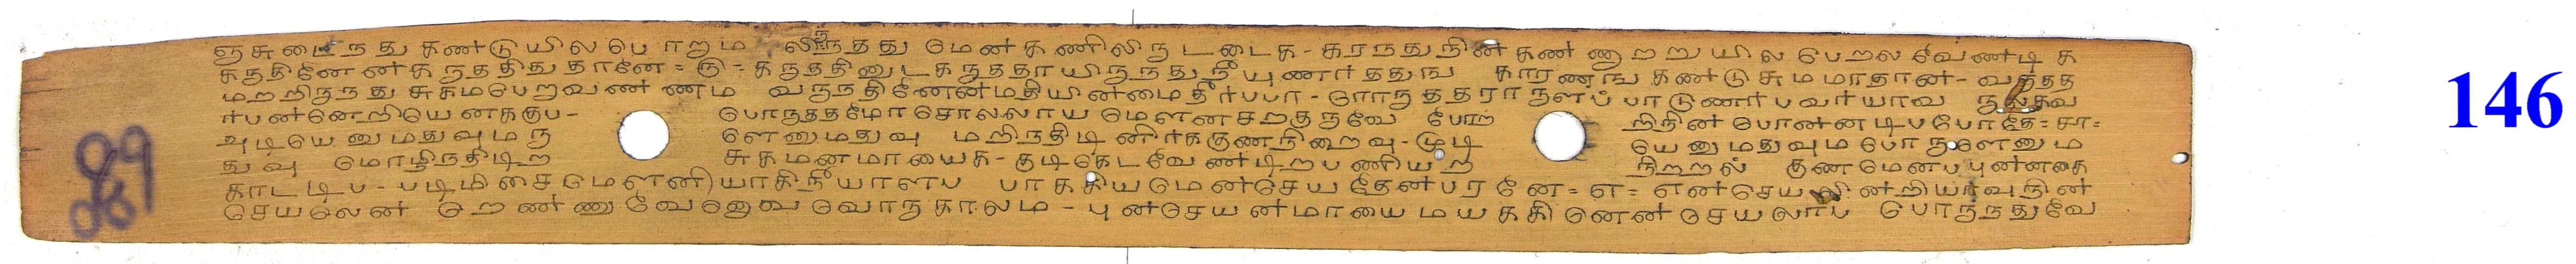 ஞசுடைந்து கண்டுயில பெறும லிருந்தது மேன்கணிலிந டடைக - கரநதுநின கண ணுறறுயில பெறல வேண்டி க
கருதினேன்க ருததிதுதானே = டு = கருததினுட கருததாயிருநதுநீ யுணர்ததுங காரணங கண்டுசுமமாதான் - வரதத
மறறிருநது சுகமபெறவண ணம வருநதினேன்மதியின்மைதீர்பபா - ரொருததராருளப் பாடுணர்பவர்யாவ ருலகவ
ர்பன்னெறியெனககுப - பொருததமோசொலலாய மௌனசறகுருவே போற றிநின பொன்னடிபபோதே = சா =
அடியே னுமதுவுமரு ளெனுமதுவு மறிநதிடி னிர்ககுணநிறைவு - முடி யெனுமதுவும பொருளெனும
துவு மொழிநதிடிற சுகமனமாயைக - குடிகெடவேண்டிறபணியற நிறறல் குணமெனபபுன்னகை
காடடிப - படிமிசைமௌனி யாகிநீயாளப பாககியமென்செயதேன்பரனே = எ = என்செயலின்றியாவுநின்
செயலென் றெண்ணுவேனொவ வொருகாலம - புன்செயன்மாயை மயககினென்செயலாப பொருந்துவே
89
146